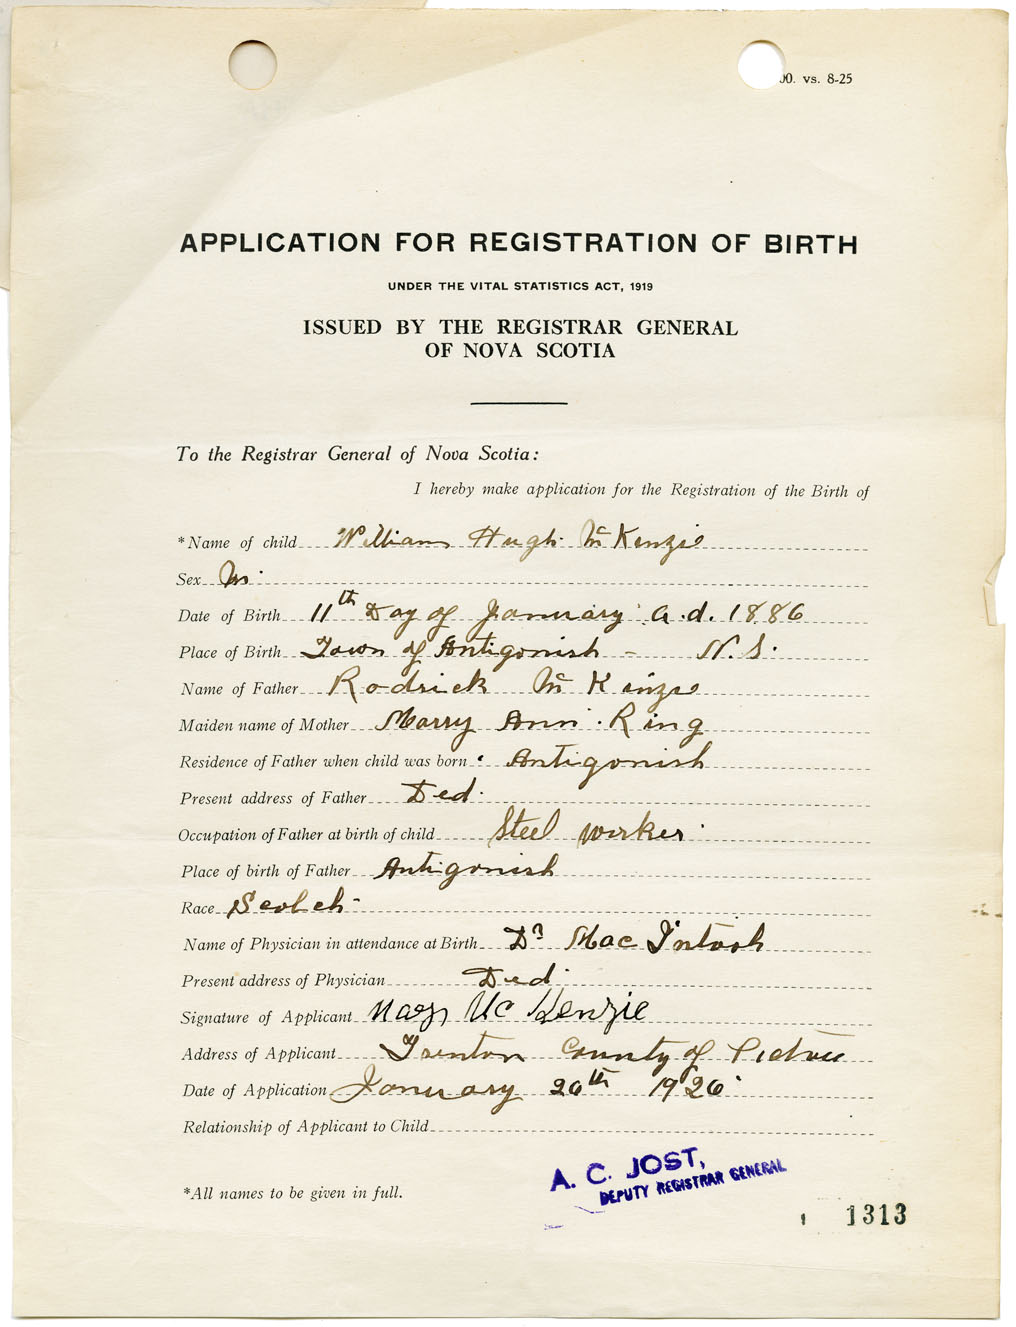 00. vs. 8-25
APPLICATION FOR REGISTRATION OF BIRTH
UNDER THE VITAL STATISTICS ACT, 1919
ISSUED BY THE REGISTRAR GENERAL
OF NOVA SCOTIA
To the Registrar General of Nova Scotia:
I hereby make application for the Registration of the Birth of
*Name of child William Hugh McKenzie
Sex M.
Date of Birth 11th Day of January a.d. 1886
Place of Birth Town of Antigonish - N.S.
Name of Father Rodrick McKinzie
Maiden name of Mother Marry Ann Ring
Residence of Father when child was born Antigonish
Present address of Father Ded
Occupation of Father at birth of child Steel worker
Place of birth of Father Antigonish
Race Scotch
Name of Physician in attendance at Birth Dr Mac Intosh
Present address of Physician Ded
Signature of Applicant Mary McKenzie
Address of Applicant Trenton County of Pictou
Date of Application January 26th 1926
Relationship of Applicant to Child
A. C. JOST,
DEPUTY REGISTRAR GENERAL
*All names to be given in full.
1313